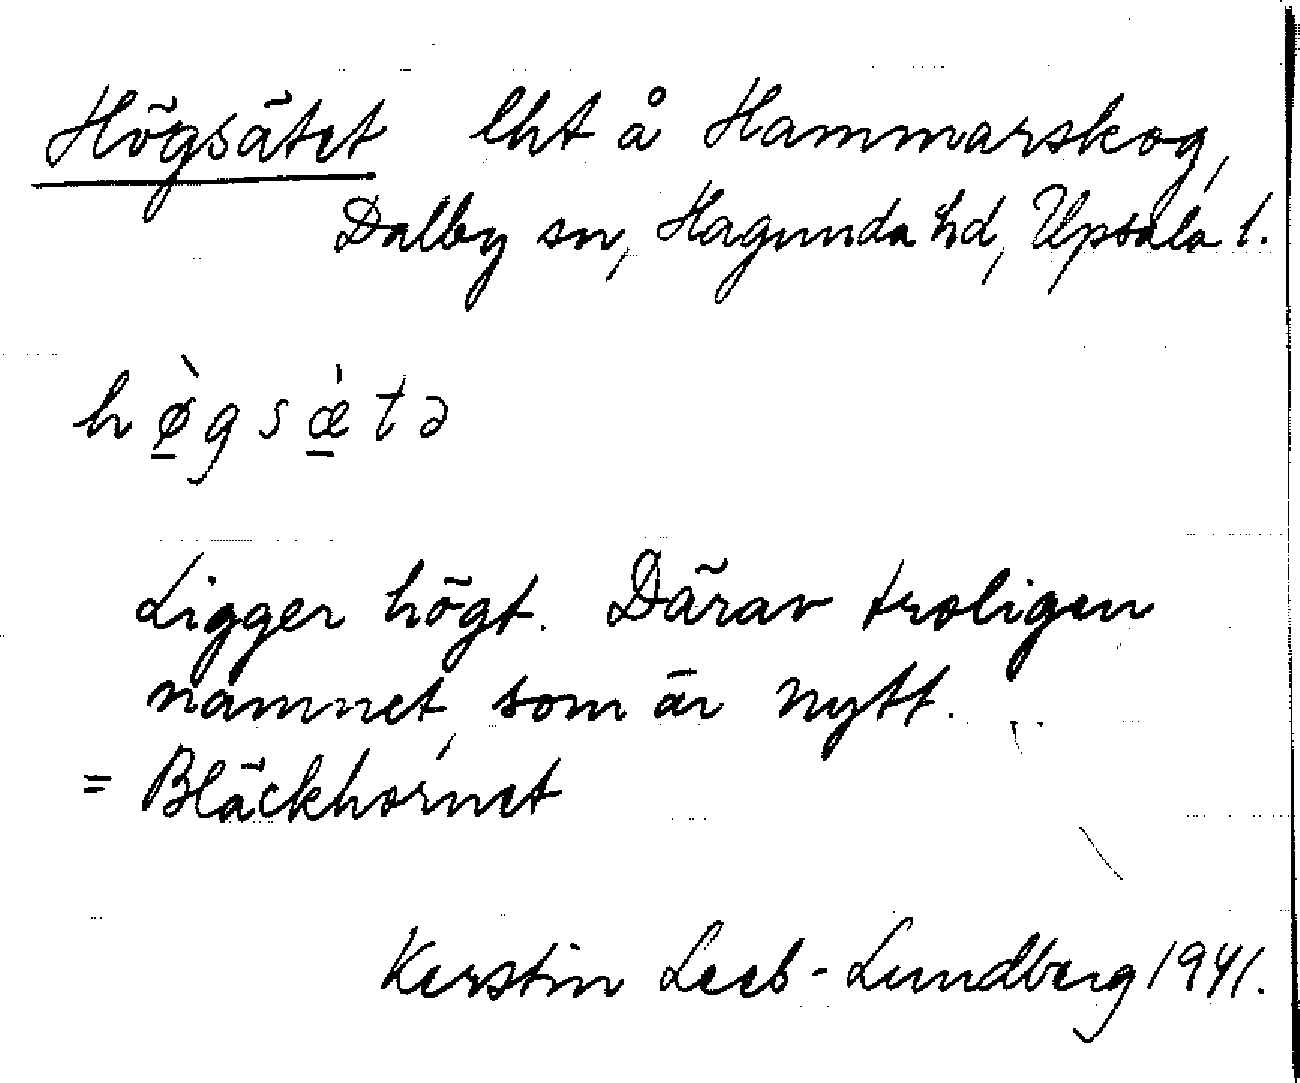 Högsätet lht å Hammarskog,
Dalby sn, Hagunda hd, Upsala l.
hø̠̀gsæ̠̀tə
Ligger högt. Därav troligen
namnet, som är nytt.
= Bläckhornet
Kerstin Leeb-Lundberg 1941.